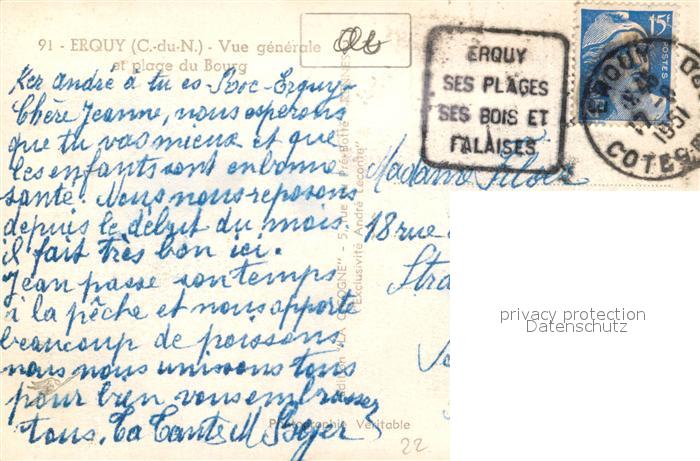 91 - ERQUY (C.-du-N.) - Vue générale
et plage du Bourg
Ker André à tu es-Roc-Erquy
Chère Jeanne, nous esperons
que tu vas mieux et que
les enfants sont en bonne
santé. Nous nous reposons
depuis le début du mois
il fait très bon ici.
Jean passe son temps
à la pêche et nous apporte
beaucoup de poissons
nous nous unissons tous
pour bien vous embrasser
tous. Ta Tante M
Photographie Véritable
22
ERQUY
SES PLAGES
SES BOIS ET
FALAISES
15F
POSTES
ERQUY
17
1951
COTES
Madame
18 rue
Stra
"LA CIGOGNE" - 5, rue
Exclusivité André Lecomte
privacy protection
Datenschutz